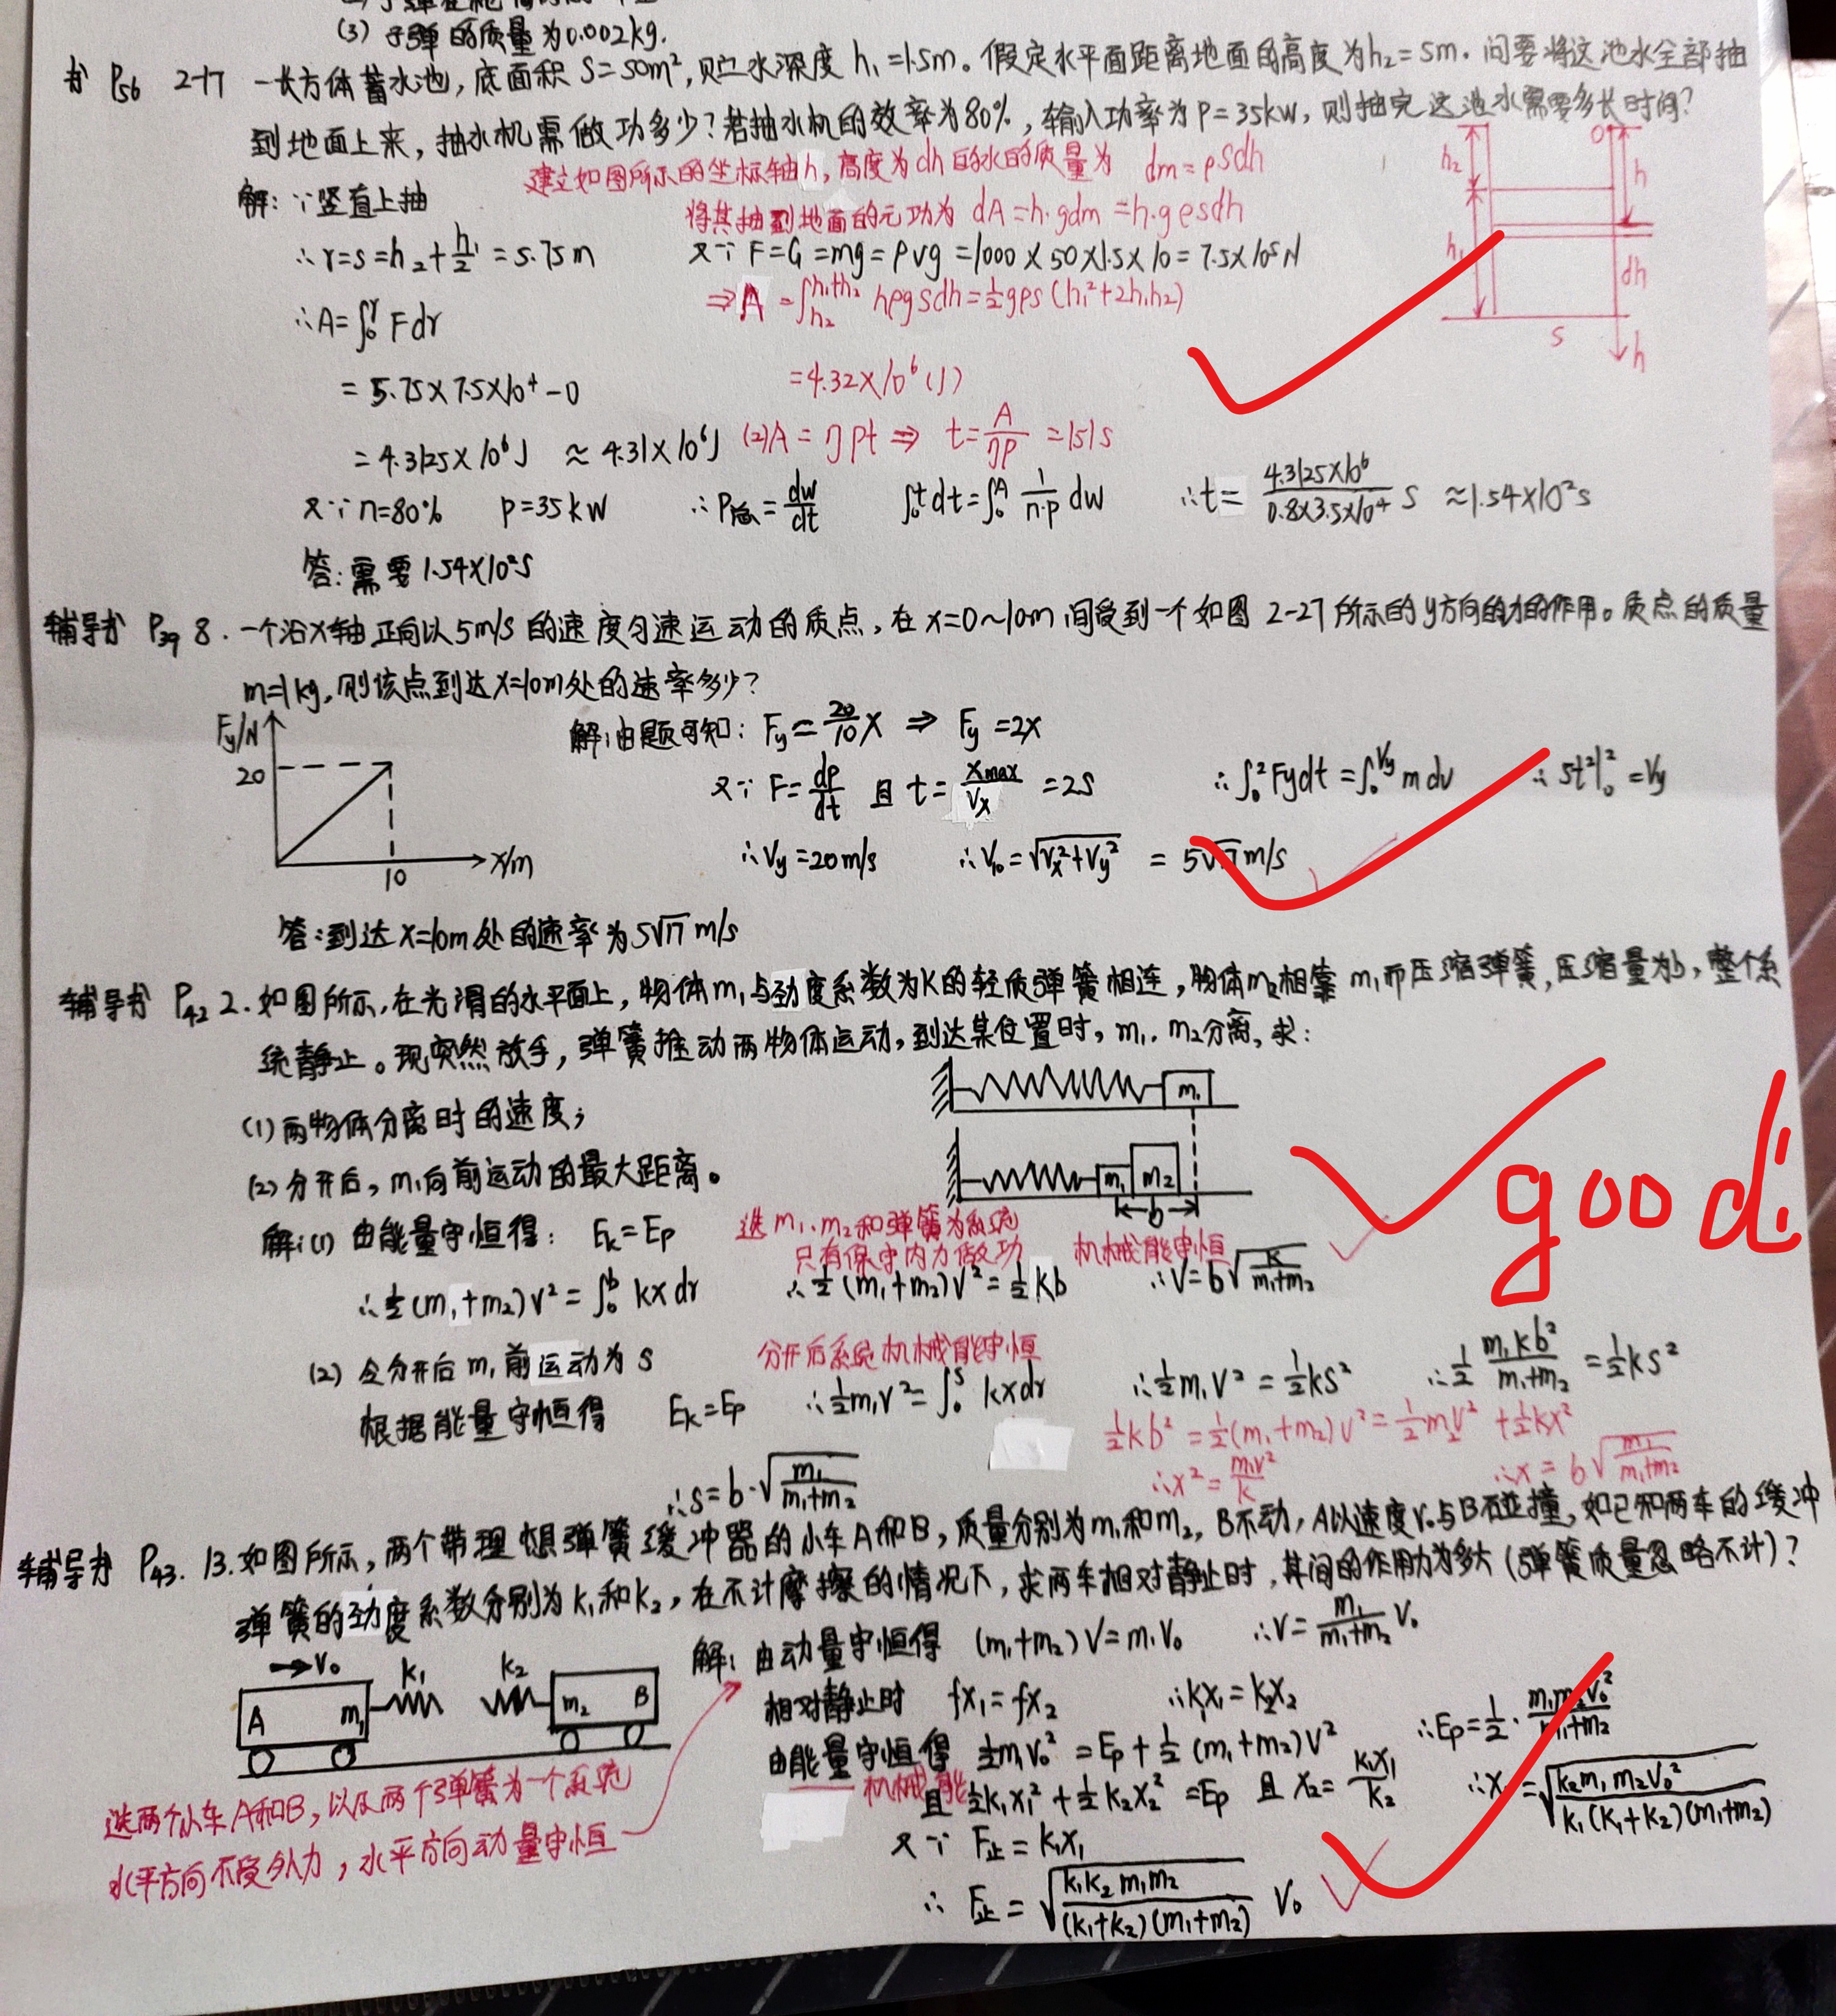 (3) 子弹的质量为0.002kg.
书 P56 2-17 一长方体蓄水池,底面积 S=50m²,贮水深度 h₁=1.5m。假定水平面距离地面的高度为h₂=5m.问要将这池水全部抽
到地面上来,抽水机需做功多少?若抽水机的效率为80%,输入功率为P=35kW,则抽完这池水需要多长时间?
建立如图所示的坐标轴h,高度为dh的水的质量为 dm=ρSdh
解:∵竖直上抽
将其抽到地面的元功为 dA=h·gdm=h·gρsdh
∴r=s=h₂+h₁/2=5.75m 又∵F=G=mg=ρvg=1000×50×1.5×10=7.5×10⁵N
⇒A=∫_{h₂}^{h₁+h₂} hρgsdh=½gρs(h₁²+2h₁h₂)
∴A=∫₀^r Fdr
=5.75×7.5×10⁴-0 =4.32×10⁶(J)
=4.3125×10⁶J ≈4.31×10⁶J (2)A=ηpt ⇒ t=A/ηp=151s
又∵n=80% p=35kW ∴P=dw/dt ∫₀^t dt=∫₀^A 1/(n·p) dw ∴t=4.3125×10⁶/(0.8×3.5×10⁴) s ≈1.54×10²s
答:需要1.54×10²s
h₂ 0 h
h₁ dh
s h
辅导书 P39 8.一个沿X轴正向以5m/s的速度匀速运动的质点,在x=0~10m间受到一个如图2-27所示的y方向的力的作用。质点的质量
m=1kg,则该点到达X=10m处的速率多少?
Fy/N 20 10 X/m
解:由题可知:Fy=20/10 X ⇒ Fy=2X
又∵F=dp/dt 且 t=Xmax/Vx=2s ∴∫₀²Fydt=∫₀^{Vy} m dv ∴5t²|₀²=Vy
∴Vy=20m/s ∴V₁₀=√(Vx²+Vy²) =5√17m/s
答:到达X=10m处的速率为5√17m/s
辅导书 P42 2.如图所示,在光滑的水平面上,物体m₁与劲度系数为K的轻质弹簧相连,物体m₂相靠m₁而压缩弹簧,压缩量为b,整个系
统静止。现突然放手,弹簧推动两物体运动,到达某位置时,m₁.m₂分离,求:
(1)两物体分离时的速度;
(2)分开后,m₁向前运动的最大距离。
m₁
m₁ m₂
b
good
解:(1) 由能量守恒得: Ek=Ep 选m₁.m₂和弹簧为系统
只有保守内力做功 机械能守恒
∴½(m₁+m₂)V²=∫₀^b kxdr ∴½(m₁+m₂)V²=½kb ∴V=b√(k/(m₁+m₂))
(2) 令分开后m₁前运动为s 分开后系统机械能守恒
根据能量守恒得 Ek=Ep ∴½m₁V²=∫₀^s kxdr ∴½m₁V²=½ks² ∴½ m₁kb²/(m₁+m₂)=½ks²
½kb²=½(m₁+m₂)V²=½m₂V²+½kx²
∴x²=m₁v²/k ∴x=b√(m₁/(m₁+m₂))
∴s=b·√(m₁/(m₁+m₂))
辅导书 P43. 13.如图所示,两个带理想弹簧缓冲器的小车A和B,质量分别为m₁和m₂,B不动,A以速度V₀与B碰撞,如已知两车的缓冲
弹簧的劲度系数分别为k₁和k₂,在不计摩擦的情况下,求两车相对静止时,其间的作用力为多大(弹簧质量忽略不计)?
→V₀ k₁ k₂
A m₁ m₂ B
解:由动量守恒得 (m₁+m₂)V=m₁V₀ ∴V=m₁/(m₁+m₂) V₀
相对静止时 fx₁=fx₂ ∴k₁x₁=k₂x₂
由能量守恒得 ½m₁V₀²=Ep+½(m₁+m₂)V² ∴Ep=½·m₁m₂V₀²/(m₁+m₂)
机械能
且½k₁x₁²+½k₂x₂²=Ep 且 x₂=k₁x₁/k₂ ∴x₁=√(k₂m₁m₂V₀²/(k₁(k₁+k₂)(m₁+m₂)))
又∵F止=k₁x₁
∴F止=√(k₁k₂m₁m₂/((k₁+k₂)(m₁+m₂))) V₀
选两个小车A和B,以及两个弹簧为一个系统
水平方向不受外力,水平方向动量守恒